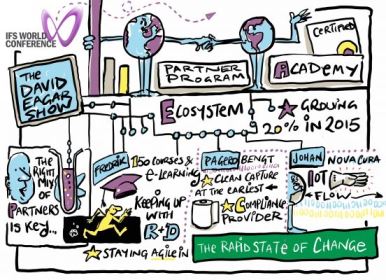 IFS WORLD
CONFERENCE
CERTIFIED
PARTNER
PROGRAM
ACADEMY
THE
DAVID
EAGAR
SHOW
ECOSYSTEM
GROWING
20% IN 2015
THE
RIGHT
MIX OF
PARTNERS
IS KEY...
FREDRIK
150 COURSES &
e-LEARNING
KEEPING UP
WITH
R+D
STAYING AGILE IN
PAGERO BENGT
CLEAN CAPTURE
AT THE EARLIEST
COMPLIANCE
PROVIDER
JOHAN NOVACURA
IOT
FLOW
THE RAPID STATE OF CHANGE